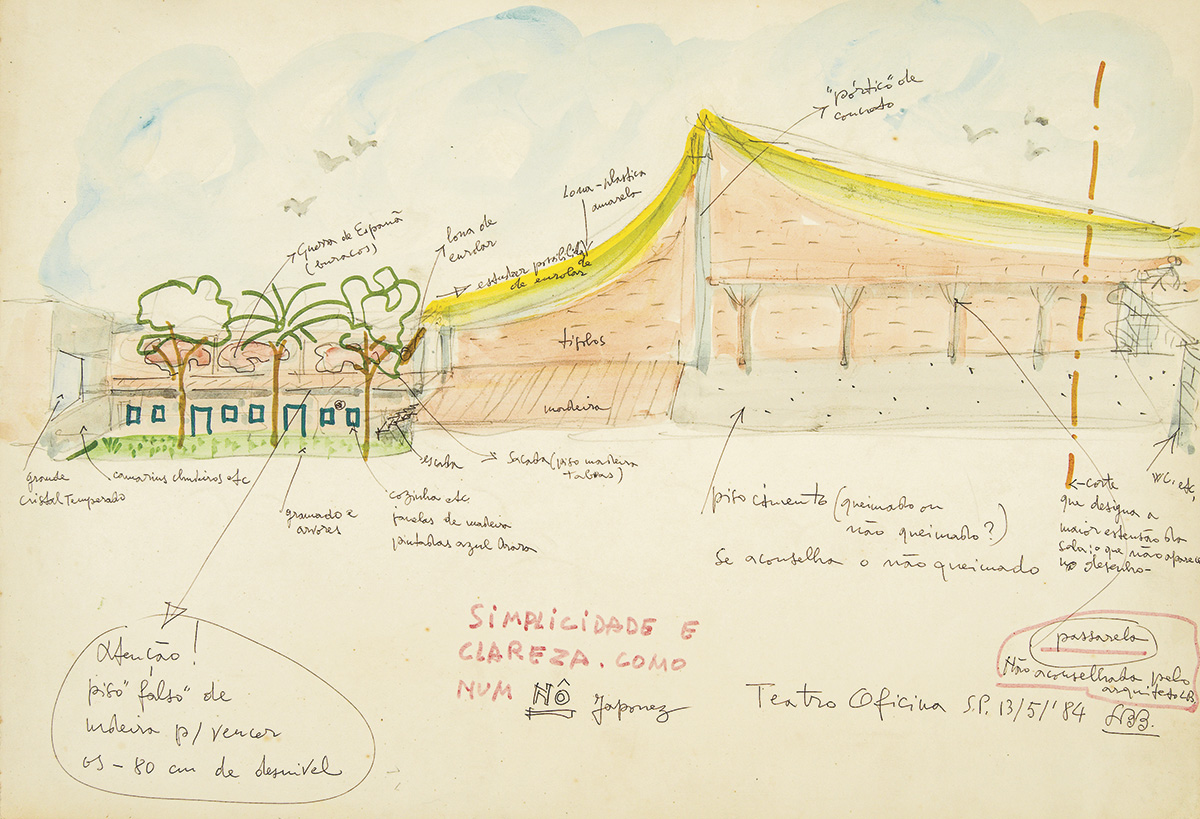 "pórtico" de
concreto
Lona-plastica
amarela
lona de
enrolar
Guerra de Espanã
(buracos)
estudar possibilid.
de enrolar
tijolos
madeira
grande
cristal Temperado
camarins chuveiros etc
gramado e
arvores
escada
Sacada (piso madeira
tabuas)
cozinha etc
janelas de madeira
pintadas azul Arara
piso cimento (queimado ou
não queimado?)
Se aconselha o não queimado
corte
que designa a
maior estensão da
sala; o que não aparece
no desenho-
WC, etc
Atenção!
piso "falso" de
madeira p/ vencer
os - 80 cm de desnivel
SIMPLICIDADE E
CLAREZA. COMO
NUM NÔ Japonez
passarela
Não aconselhada pelo
arquiteto LB.
Teatro Oficina S.P. 13/5/'84 LBB.